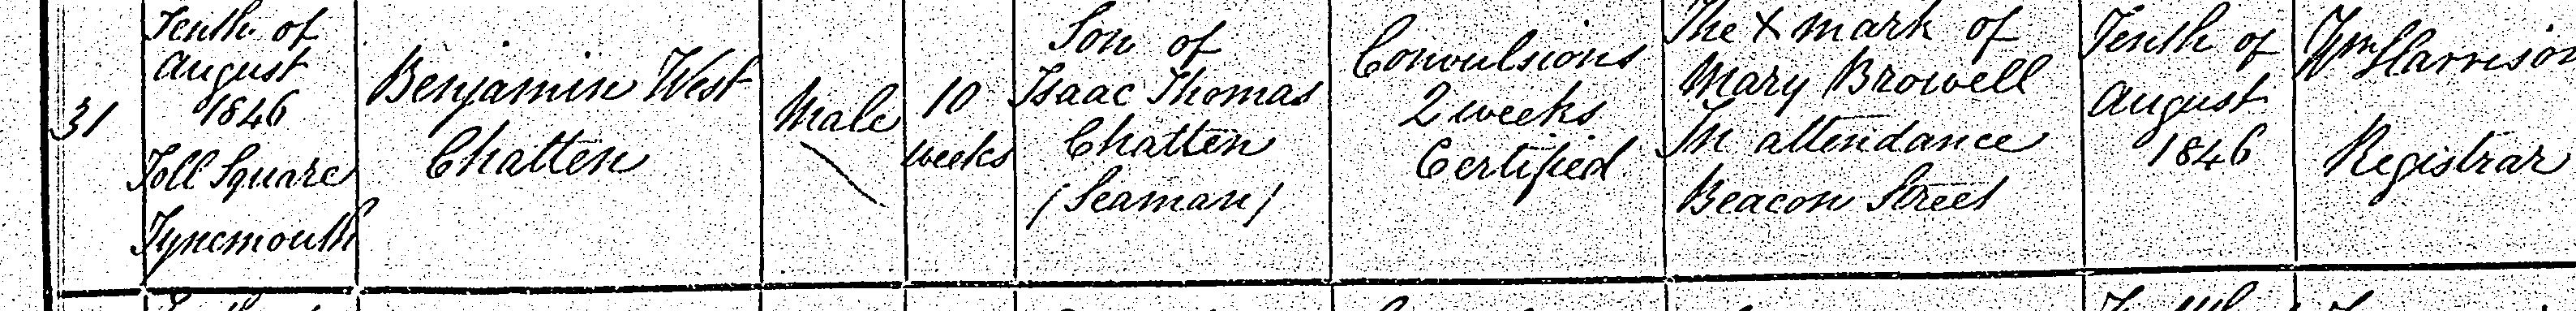 31
Tenth of
August
1846
Toll Square
Tynemouth
Benjamin West
Chatten
Male
10
weeks
Son of
Isaac Thomas
Chatten
(Seaman)
Convulsions
2 weeks
Certified
The X mark of
Mary Browell
In attendance
Beacon Street
Tenth of
August
1846
Wm Harrison
Registrar